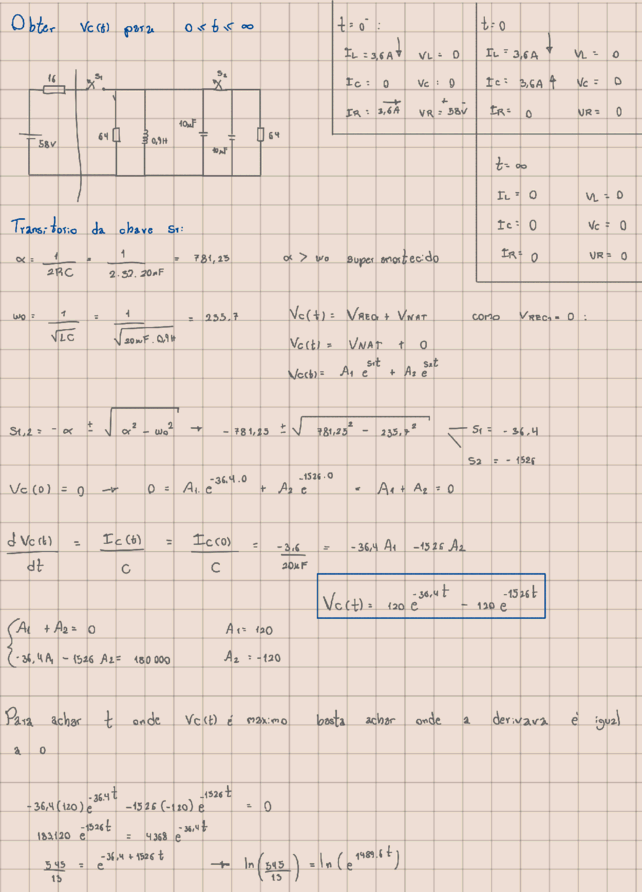 Obter Vc(t) para 0 < t < ∞
16
S1
S2
58V
64
0,9H
10uF
10uF
64
t = 0⁻:
IL = 3,6A↓ VL = 0
Ic = 0 Vc = 0
IR = 3,6A VR = 58V
t = 0
IL = 3,6A ↓ VL = 0
Ic = 3,6A ↑ Vc = 0
IR = 0 VR = 0
t = ∞
IL = 0 VL = 0
Ic = 0 Vc = 0
IR = 0 VR = 0
Transitorio da chave S1:
α = 1/2RC = 1/2.32.20uF = 781,25 α > wo super amortecido
wo = 1/√LC = 1/√20uF.0,9H = 235,7
Vc(t) = VREG + VNAT como VREG = 0 :
Vc(t) = VNAT + 0
Vc(t) = A1 e^s1t + A2 e^s2t
S1,2 = -α ± √α² - wo² → -781,25 ± √781,25² - 235,7²
S1 = -36,4
S2 = -1526
Vc(0) = 0 → 0 = A1. e^-36.4.0 + A2 e^-1526.0 = A1 + A2 = 0
d Vc(t)/dt = Ic(t)/C = Ic(0)/C = -3,6/20uF = -36,4 A1 -1526 A2
Vc(t) = 120 e^-36,4t - 120 e^-1526t
A1 + A2 = 0 A1 = 120
-36,4A1 - 1526 A2 = 180 000 A2 = -120
Para achar t onde Vc(t) é maximo basta achar onde a derivava é igual
a 0
-36,4(120)e^-36.4t -1526(-120)e^-1526t = 0
183120 e^-1526t = 4368 e^-36,4t
545/13 = e^-36,4 + 1526t → ln(545/13) = ln(e^1489.6t)